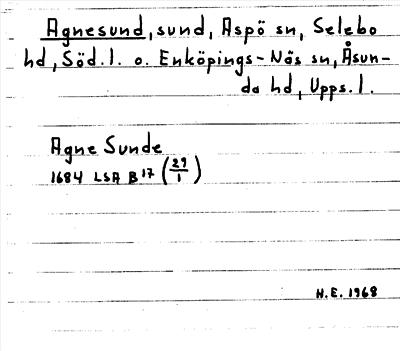 Agnesund, sund, Aspö sn, Selebo
hd, Söd.l. o. Enköpings-Näs sn, Åsun-
da hd, Upps.l.
Agne Sunde
1684 LSA B 17 (29/1)
H.E. 1968